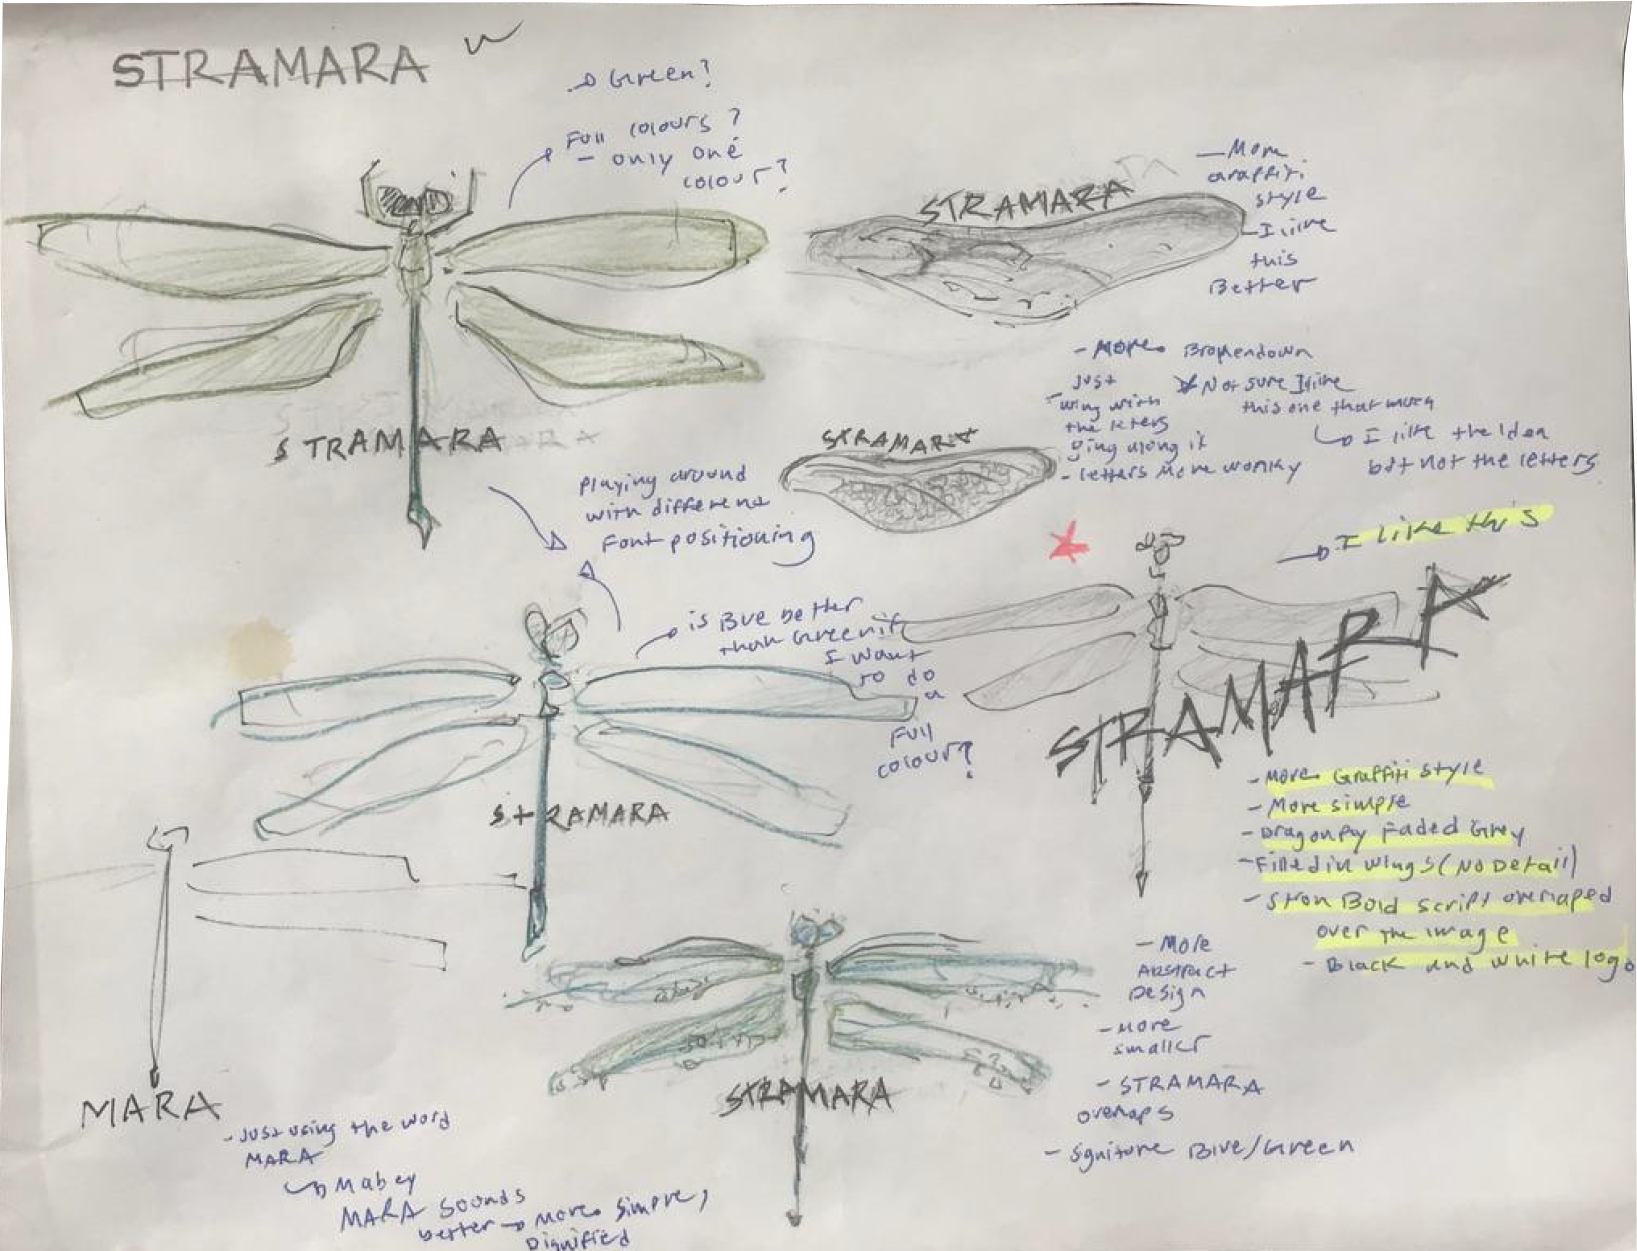 STRAMARA
Green?
Full colours?
- only one
colour?
STRAMARA
- More
graffiti
style
- I like
this
Better
STRAMARA
- More Brokendown
Just
wing with
the leters
going along it
- letters More wonky
Not sure I like
this one that much
I like the Idea
but not the letters
STRAMARA
Playing around
with different
Font positioning
I like this
STRAMARA
- More Graffiti style
- More simple
- Dragonfly Faded Grey
- Filled in wings (No Detail)
- Stron Bold script overlaped
over the image
- Black and white logo
is Blue better
than Green if
I want
to do
a
Full
colour?
StRAMARA
MARA
- Just using the word
MARA
Mabey
MARA sounds
better → More simple,
Dignified
STRAMARA
- More
Abstract
Design
- More
smaller
- STRAMARA
overlaps
- Signiture Blue/Green